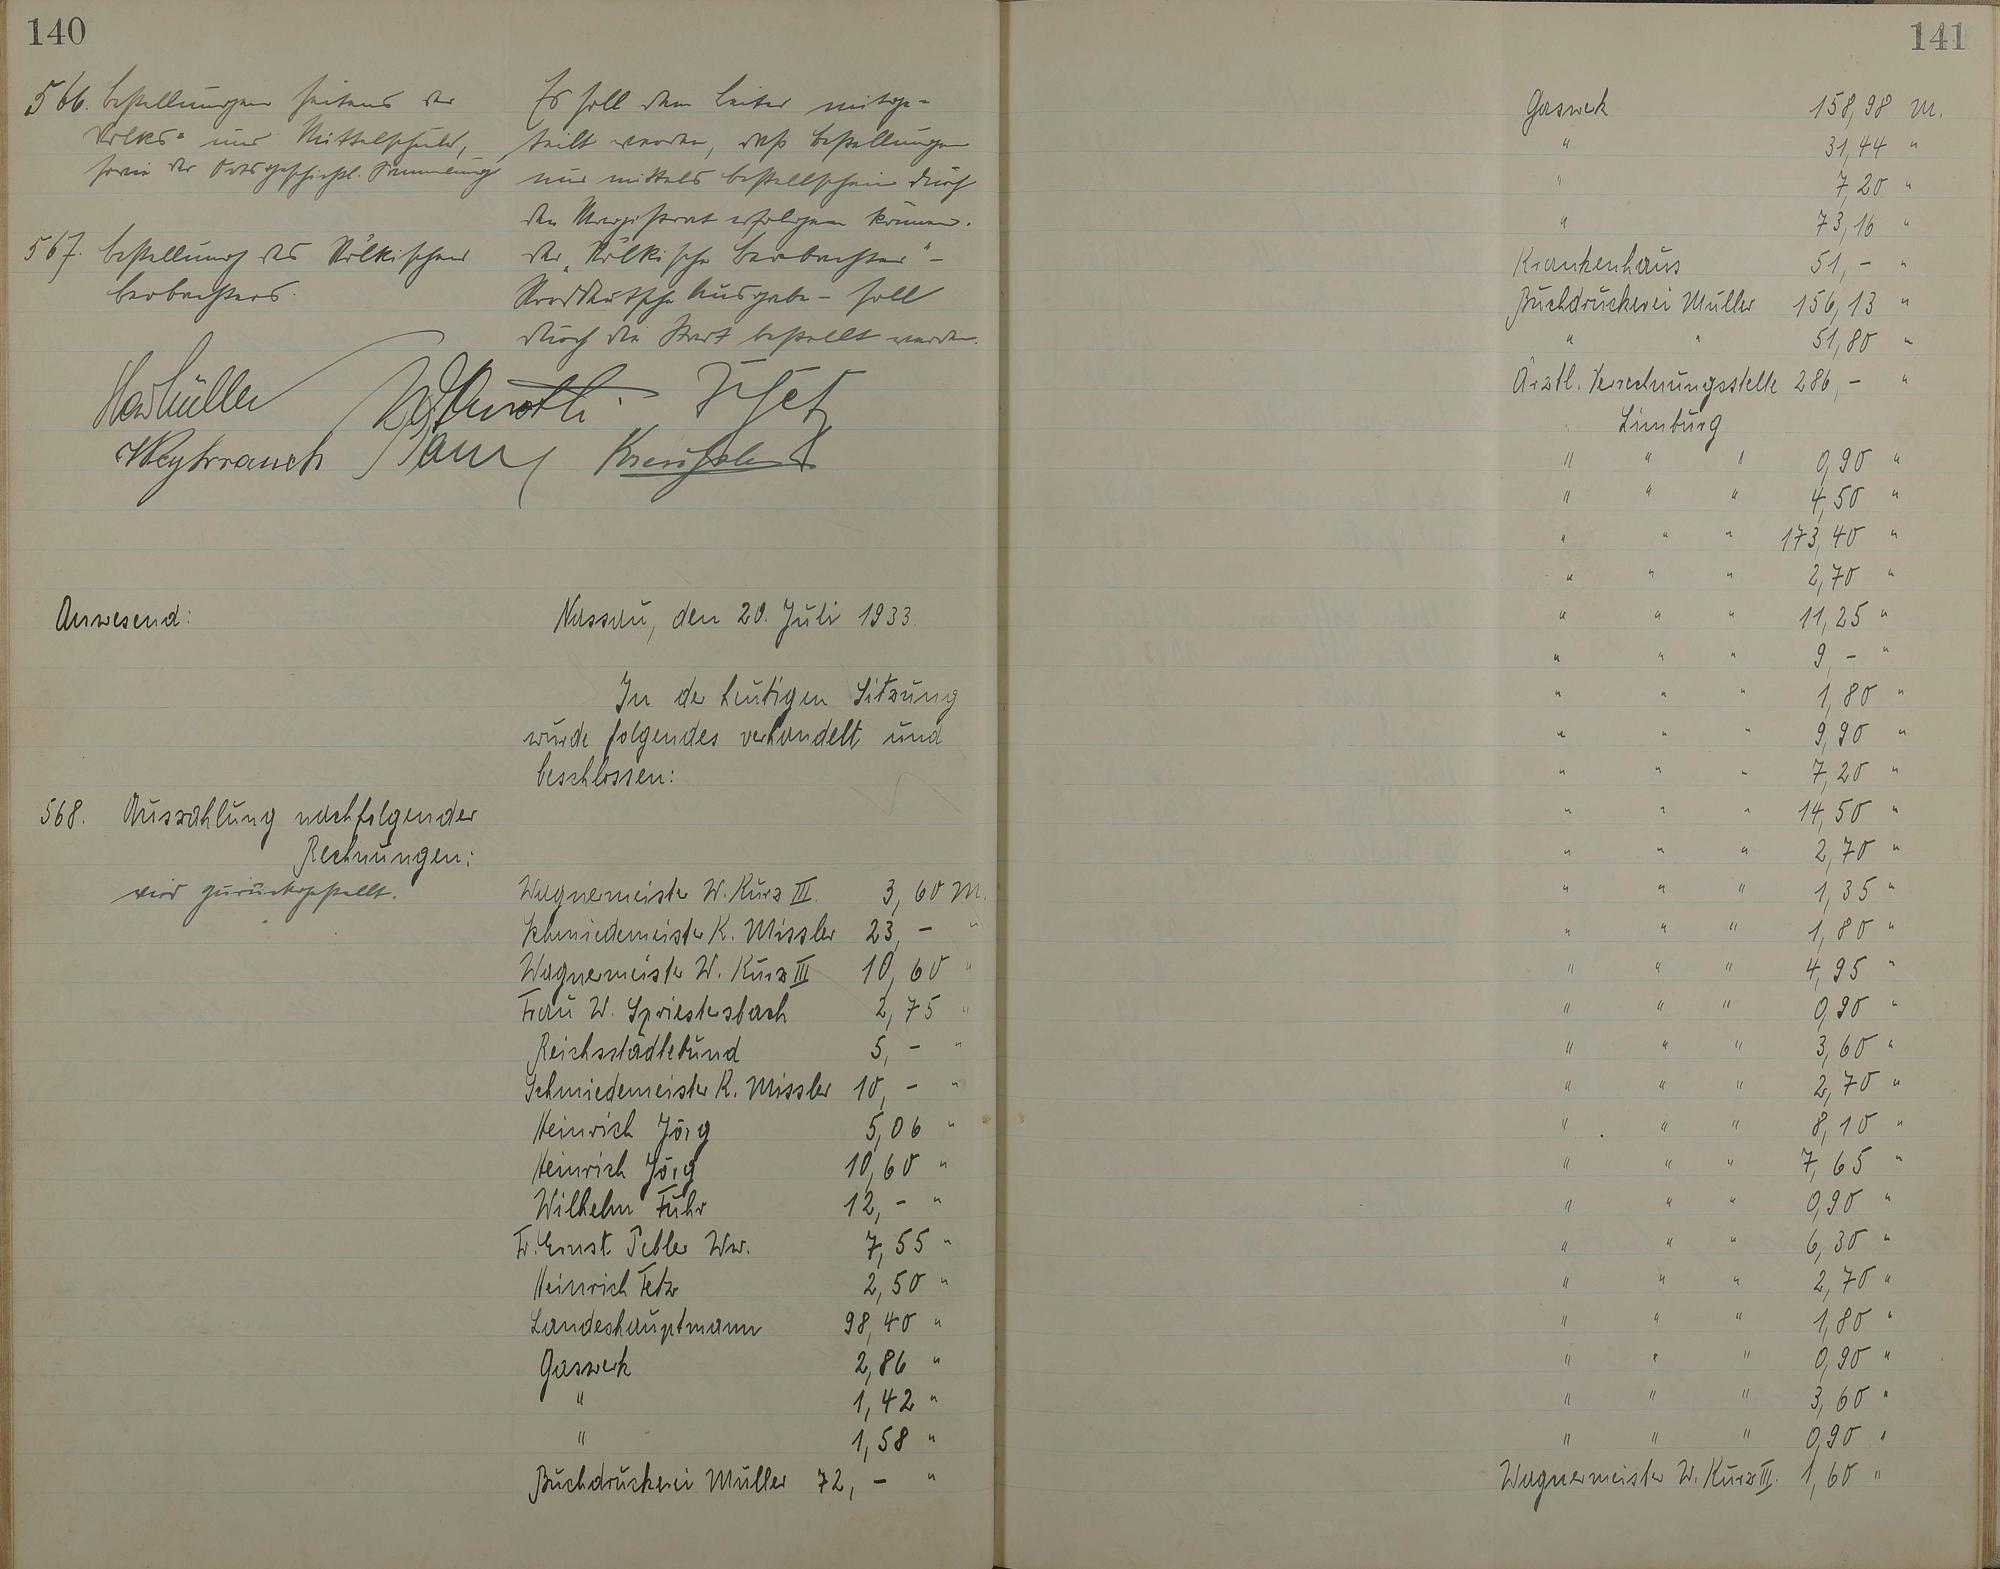 140
566. Bestellungen seitens der
Volks- und Mittelschule,
sowie der Ortsgeschichtl. Sammlung
Es soll dem Leiter mitge-
teilt werden, daß Bestellungen
nur mittels Bestellschein durch
den Magistrat erfolgen können.
567. Bestellung des Völkischen
Beobachters.
Der „Völkische Beobachter" -
Norddeutsche Ausgabe - soll
durch die Stadt bestellt werden.
Anwesend:
Nassau, den 20. Juli 1933.
In der heutigen Sitzung
wurde folgendes verhandelt und
beschlossen:
568. Auszahlung nachfolgender
Rechnungen:
wird zurückgestellt.
Wagnermeister W. Kurz III. 3,60 M.
Schmiedemeister K. Missler 23,- "
Wagnermeister W. Kurz III 10,60 "
Frau W. Spriestersbach 2,75 "
Reichsstädtebund 5,- "
Schmiedemeister K. Missler 10,- "
Heinrich Jörg 5,06 "
Heinrich Jörg 10,60 "
Wilhelm Fuhr 12,- "
Fr. Ernst Pebler Ww. 7,55 "
Heinrich Fetz 2,50 "
Landeshauptmann 98,40 "
Gaswerk 2,86 "
" 1,42 "
" 1,58 "
Buchdruckerei Müller 72,- "
141
Gaswerk 158,98 M.
" 31,44 "
" 7,20 "
" 73,16 "
Krankenhaus 51,- "
Buchdruckerei Müller 156,13 "
" " 51,80 "
Ärztl. Verrechnungsstelle 286,- "
Limburg
" " " 0,90 "
" " " 4,50 "
" " " 173,40 "
" " " 2,70 "
" " " 11,25 "
" " " 9,- "
" " " 1,80 "
" " " 9,90 "
" " " 7,20 "
" " " 14,50 "
" " " 2,70 "
" " " 1,35 "
" " " 1,80 "
" " " 4,95 "
" " " 0,90 "
" " " 3,60 "
" " " 2,70 "
" " " 8,10 "
" " " 7,65 "
" " " 0,90 "
" " " 6,30 "
" " " 2,70 "
" " " 1,80 "
" " " 0,90 "
" " " 3,60 "
" " " 0,90 "
Wagnermeister W. Kurz III. 1,60 "